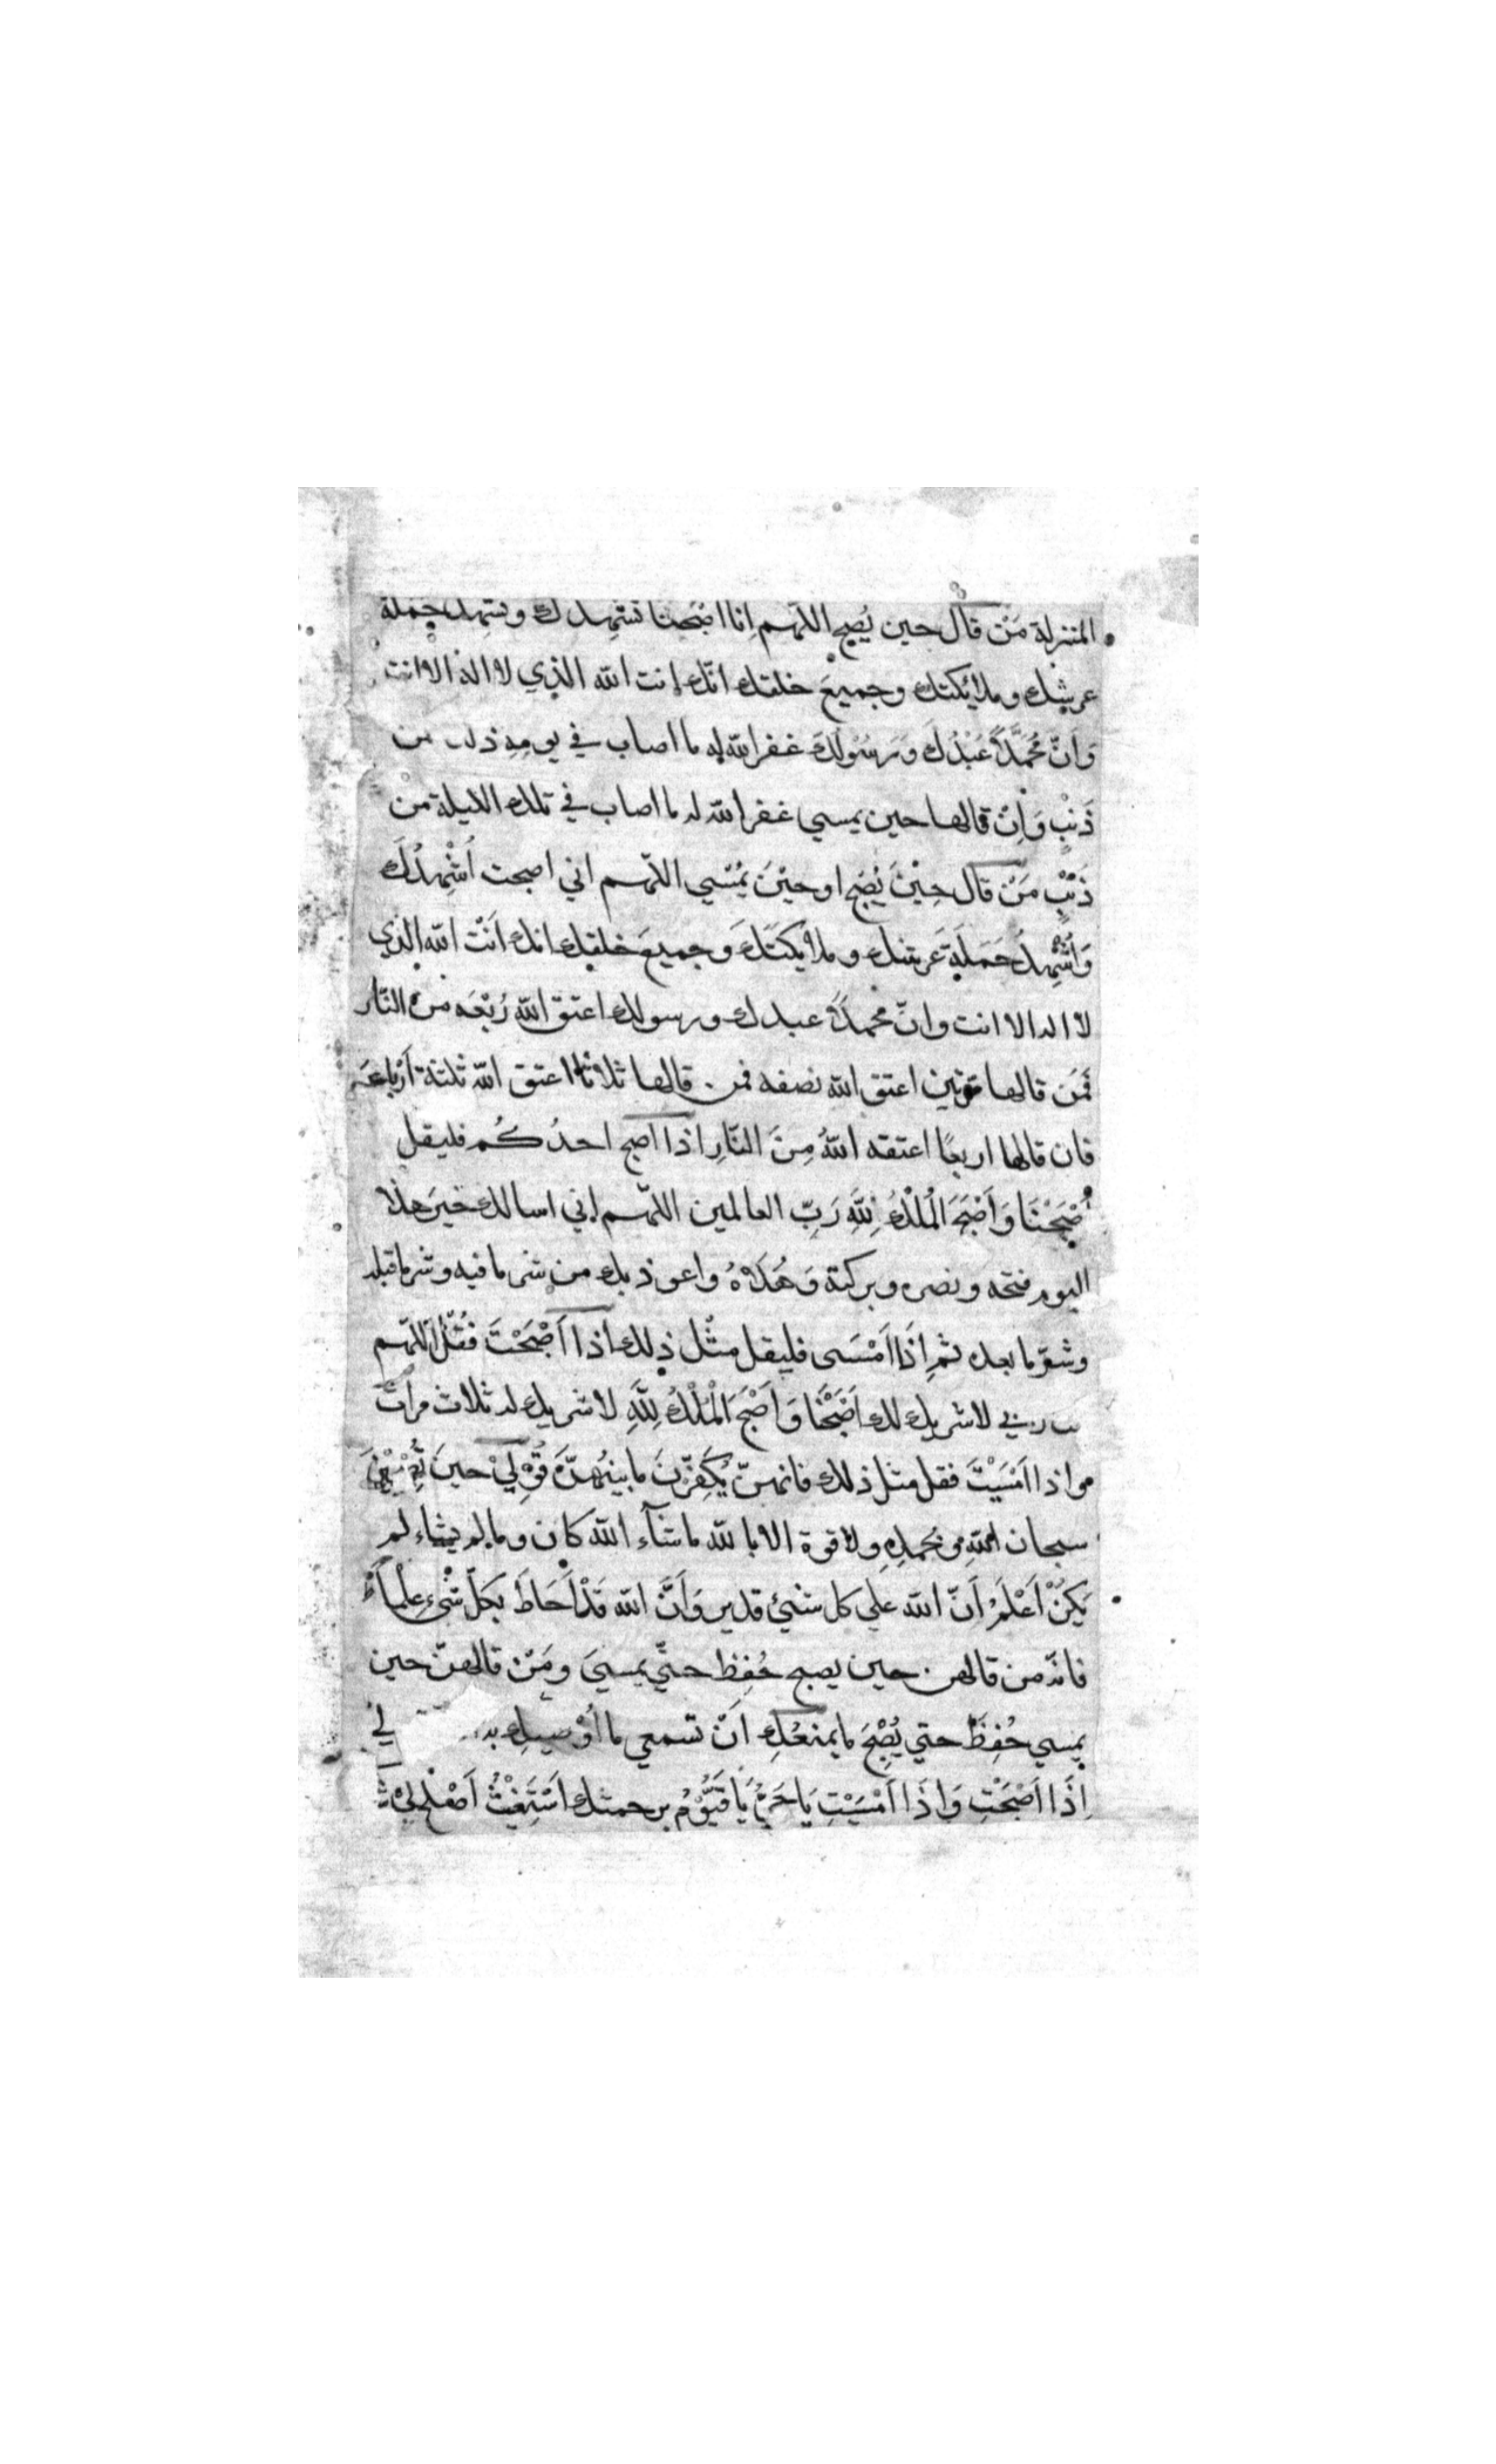 المنزلة مَنْ قال حين يُصبح اللّهم اِنا اصْبَحنا نشهدك ونشهد حملة
عرشك وملائكتك وجميعَ خلقك انّك انت الله الذي لا اله الا انت
وَاَنّ مُحَمَّدًا عَبْدُكَ وَرَسُوْلُكَ غفر الله له ما اصاب في يومِهِ ذلك من
ذَنْبٍ وَاِنْ قالها حين يمسي غفر الله له ما اصاب في تلك الليلة من
ذَنْبٍ مَنْ قال حِيْنَ يُصْبح او حيْنَ يُمْسي اللّهم اني اصبحت اُشْهِدُكَ
وَاُشْهِدُ حَمَلَةَ عَرشك وملائكتَكَ وجميعَ خلقك انك اَنْتَ الله الذي
لا اله الا انت وانّ محمدًا عبدك ورسولك اعتق الله رُبْعَه من النّار
فَمَن قالها مرتين اعتق الله نصفه فمن قالها ثلاثا اعتق الله ثلثة اَرْباعه
فان قالها اربعًا اعتقه اللهُ مِنَ النّارِ اذا اصبح احدُكُم فليقل
اَصْبَحْنَا وَاَصْبَحَ الْمُلْكُ لِلّهِ رَبِّ العالمين اللّهم اني اسالك خيرَ هذا
اليوم فتحه ونصره وبركته وَهُدَاهُ واعوذ بك من شر ما فيه وشر ما قبله
وشرّ ما بعده ثم اِذَا اَمْسَى فليقل مثْل ذلك اذا اَصْبَحْتَ فَقُلْ اَللّهم
ربي لا شريك لك اَصْبَحْنَا وَاَصْبَحَ الْمُلْكُ لِلّهِ لا شريك له ثلاث مراتٍ
واذا اَمْسَيْتَ فقل مثل ذلك فانهنّ يُكَفِّرْنَ ما بينهُنّ قُوْلِيْ حينَ تُصْبِحِيْنَ
سبحان اللهِ وبحمدِهِ ولا قوة الا بالله ما شآء الله كان وما لم يشاء لم
يَكُنْ اَعْلَمُ اَنّ الله علي كل شيئ قدير وَاَنَّ الله قَدْ اَحَاطَ بكلّ شْيءٍ عِلْمًا
فانّه من قالهن حين يصبح حُفِظ حتّي يمسيَ ومَنْ قالهنّ حين
يمسي حُفِظَ حتي يُصْبِحَ ما يمنعُكِ اَنْ تسمعي ما اُوْصيكِ به لي
اِذَا اَصْبَحْتِ وَاِذَا اَمْسَيْتِ يَا حَيُّ يَا قَيُّوْمُ برحمتك اَسْتَغِيْثُ اَصْلِحْ لِيْ